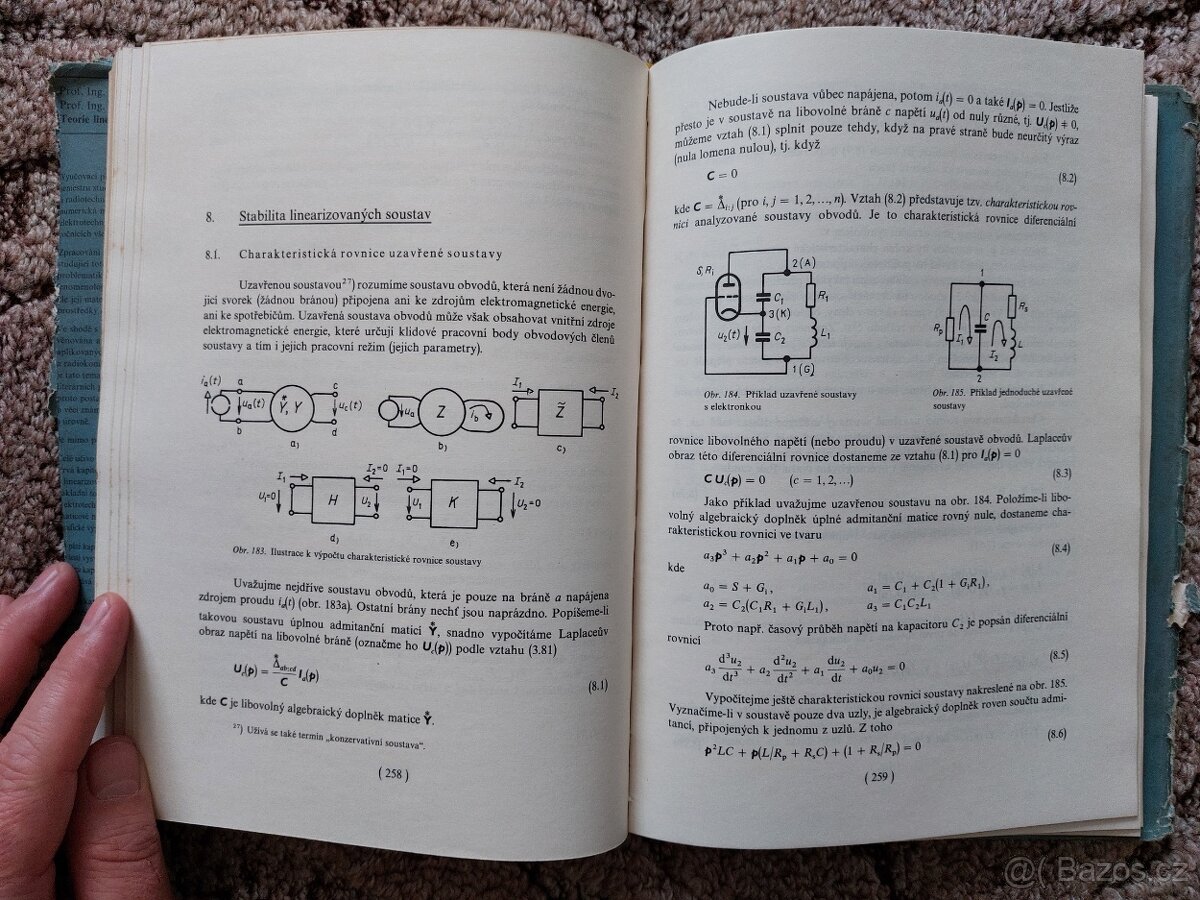 Prof. Ing.
Prof. Ing.
Teorie line
8. Stabilita linearizovaných soustav
8.1. Charakteristická rovnice uzavřené soustavy
Uzavřenou soustavou²⁷) rozumíme soustavu obvodů, která není žádnou dvo-
jicí svorek (žádnou bránou) připojena ani ke zdrojům elektromagnetické energie,
ani ke spotřebičům. Uzavřená soustava obvodů může však obsahovat vnitřní zdroje
elektromagnetické energie, které určují klidové pracovní body obvodových členů
soustavy a tím i jejich pracovní režim (jejich parametry).
iₐ(t) a uₐ(t) b Y̽, Y c u_c(t) d a)
uₐ Z i_b b)
I₁ Z̃ I₂ c)
I₁ U₁=0 H I₂=0 U₂ d)
I₁=0 U₁ K I₂ U₂=0 e)
Obr. 183. Ilustrace k výpočtu charakteristické rovnice soustavy
Uvažujme nejdříve soustavu obvodů, která je pouze na bráně a napájena
zdrojem proudu iₐ(t) (obr. 183a). Ostatní brány nechť jsou naprázdno. Popišeme-li
takovou soustavu úplnou admitanční maticí Y̽, snadno vypočítáme Laplaceův
obraz napětí na libovolné bráně (označme ho U_c(p)) podle vztahu (3.81)
U_c(p) = Δ̽_ab:cd / C Iₐ(p) (8.1)
kde C je libovolný algebraický doplněk matice Y̽.
²⁷) Užívá se také termín „konzervativní soustava“.
(258)
Nebude-li soustava vůbec napájena, potom iₐ(t) = 0 a také Iₐ(p) = 0. Jestliže
přesto je v soustavě na libovolné bráně c napětí uₐ(t) od nuly různé, tj. U_c(p) ≠ 0,
můžeme vztah (8.1) splnit pouze tehdy, když na pravé straně bude neurčitý výraz
(nula lomena nulou), tj. když
C = 0 (8.2)
kde C = Δ̽_i:j (pro i, j = 1, 2, ..., n). Vztah (8.2) představuje tzv. charakteristickou rov-
nici analyzované soustavy obvodů. Je to charakteristická rovnice diferenciální
S, Rᵢ 2(A) C₁ R₁ 3(K) u₂(t) C₂ L₁ 1(G)
1 Rₚ I₁ C I₂ Rₛ L 2
Obr. 184. Příklad uzavřené soustavy
s elektronkou
Obr. 185. Příklad jednoduché uzavřené
soustavy
rovnice libovolného napětí (nebo proudu) v uzavřené soustavě obvodů. Laplaceův
obraz této diferenciální rovnice dostaneme ze vztahu (8.1) pro Iₐ(p) = 0
C U_c(p) = 0 (c = 1, 2, ...) (8.3)
Jako příklad uvažujme uzavřenou soustavu na obr. 184. Položíme-li libo-
volný algebraický doplněk úplné admitanční matice rovný nule, dostaneme cha-
rakteristickou rovnici ve tvaru
a₃p³ + a₂p² + a₁p + a₀ = 0 (8.4)
kde
a₀ = S + Gᵢ, a₁ = C₁ + C₂(1 + GᵢR₁),
a₂ = C₂(C₁R₁ + GᵢL₁), a₃ = C₁C₂L₁
Proto např. časový průběh napětí na kapacitoru C₂ je popsán diferenciální
rovnicí
a₃ d³u₂/dt³ + a₂ d²u₂/dt² + a₁ du₂/dt + a₀u₂ = 0 (8.5)
Vypočítejme ještě charakteristickou rovnici soustavy nakreslené na obr. 185.
Vyznačíme-li v soustavě pouze dva uzly, je algebraický doplněk roven součtu admi-
tancí, připojených k jednomu z uzlů. Z toho
p²LC + p(L/Rₚ + RₛC) + (1 + Rₛ/Rₚ) = 0 (8.6)
(259)
@( Bazos.cz